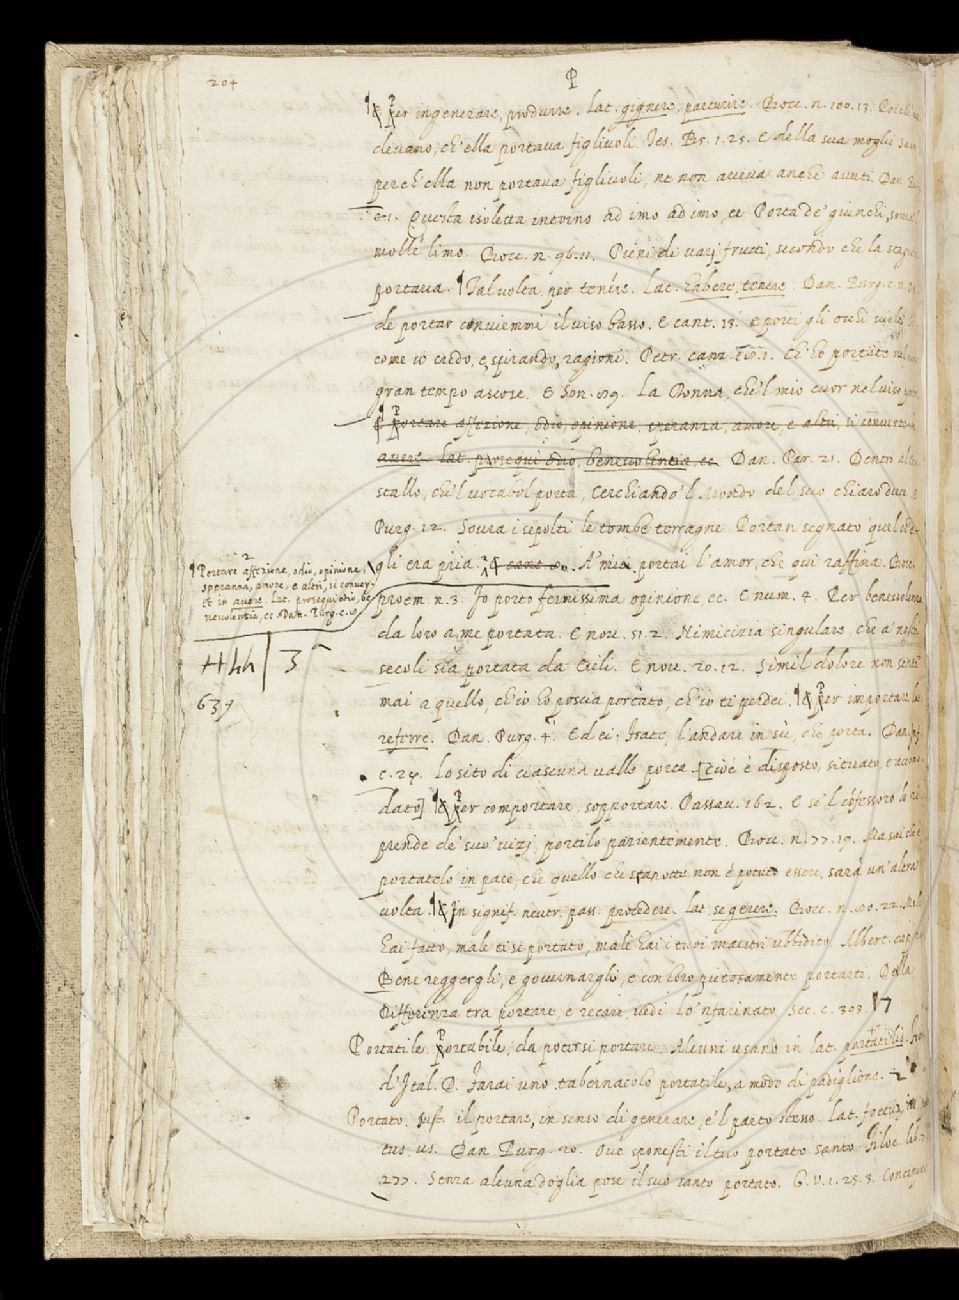 204
P
¶ & Per ingenerare, produrre. Lat. gignere, parturire. Bocc. n. 100. 13.
devano, ch'ella portava figlivoli. Tes. Br. 1. 25. E della sua moglie
perch'ella non portava figlivoli, ne non aveva anche avuti. Dan.
c. 1. Questa isoletta intorno ad imo ad imo, ec Porta de' giunchi, sovra
molle limo. Bocc. n. 96. Pieni di varj frutti, secondo che la stagion
portava. ¶ Talvolta, per tenére. Lat. habere, tenere. Dan. Purg. c.
de portar convienmi il viso basso. E cant. 13. e porti gli occhi
come io credo, e, spirando, ragioni. Petr. canz. Ch'ho portato nel
gran tempo ascose. E Son. La Donna, che'l mio cuor nel viso
Portare affezione, odio, opinione, speranza, amore, e altri, si
avere. lat. prosequi odio, benevolentia, ec. Dan. Par. 21. Dentro al
stallo, che'l vocabol porta, Cerchiando'l Mondo del suo chiaro
Purg. 12. Sovra i sepolti le tombe terragne Portan segnato quel
gli era pria. A' miei portai l'amor, che qui raffina. Bocc.
proem. n. 3. Io porto fermissima opinione, ec. E num. 4. Per benevolenza
da loro a me portata. E nov. 51. 2. Nimicizia singulare, che a' nostri
secoli sia portata da Cieli. E nov. 20. 12. Simil dolore non sentì
mai a quello, ch'io ho poscia portato, ch'io ti perdei. ¶ & Per importare
referre. Dan. Purg. 4. Ed ei: Frate, l'andare in sù, che porta. Dan.
c. 24. Lo sito di ciascuna valle porta [cioè è disposto, situato, e
dato] ¶ & Per comportare, sopportare. Passav. 162. E se'l cófessoro lo
prende de' suo' vizj, portilo pazientemente. Bocc. n. 77. 19. Ma sai che è
portatelo in pace, che quello che stanotte non è potuto essere, sarà un'altra
volta. ¶ & In signif. neutr. pass. procedere. lat. se gerere. Bocc. n. 22. Male
hai fatto, male ti se' portato, male hai i tuoi maestri ubbidito. Albert.
Bene reggergli, e governargli, e con loro pietosamente portarti. Della
differenza tra portare, e recare, vedi lo 'nfarinato Sec. c. 303.
Portatile. Portabile, da potersi portare. Alcuni usano in lat. portatilis.
d'Ital. D. Farai uno tabernacolo portatile, a modo di padiglione.
Portato. sust. il portare, in senso di generare, e'l parto stesso. Lat. foetus,
tus, us. Dan. Purg. 20. Ove sponesti il tuo portato santo. Filoc. lib.
277. Senza alcuna doglia pose il suo santo portato. G. V. 1. 25. 3.
¶ Portare affezione, odio, opinione,
speranza, amore, e altri, si conver-
te in avere. Lat. prosequi odio, be
nevolentia, ec. Dan. Purg. c.
Hhh | 3
639